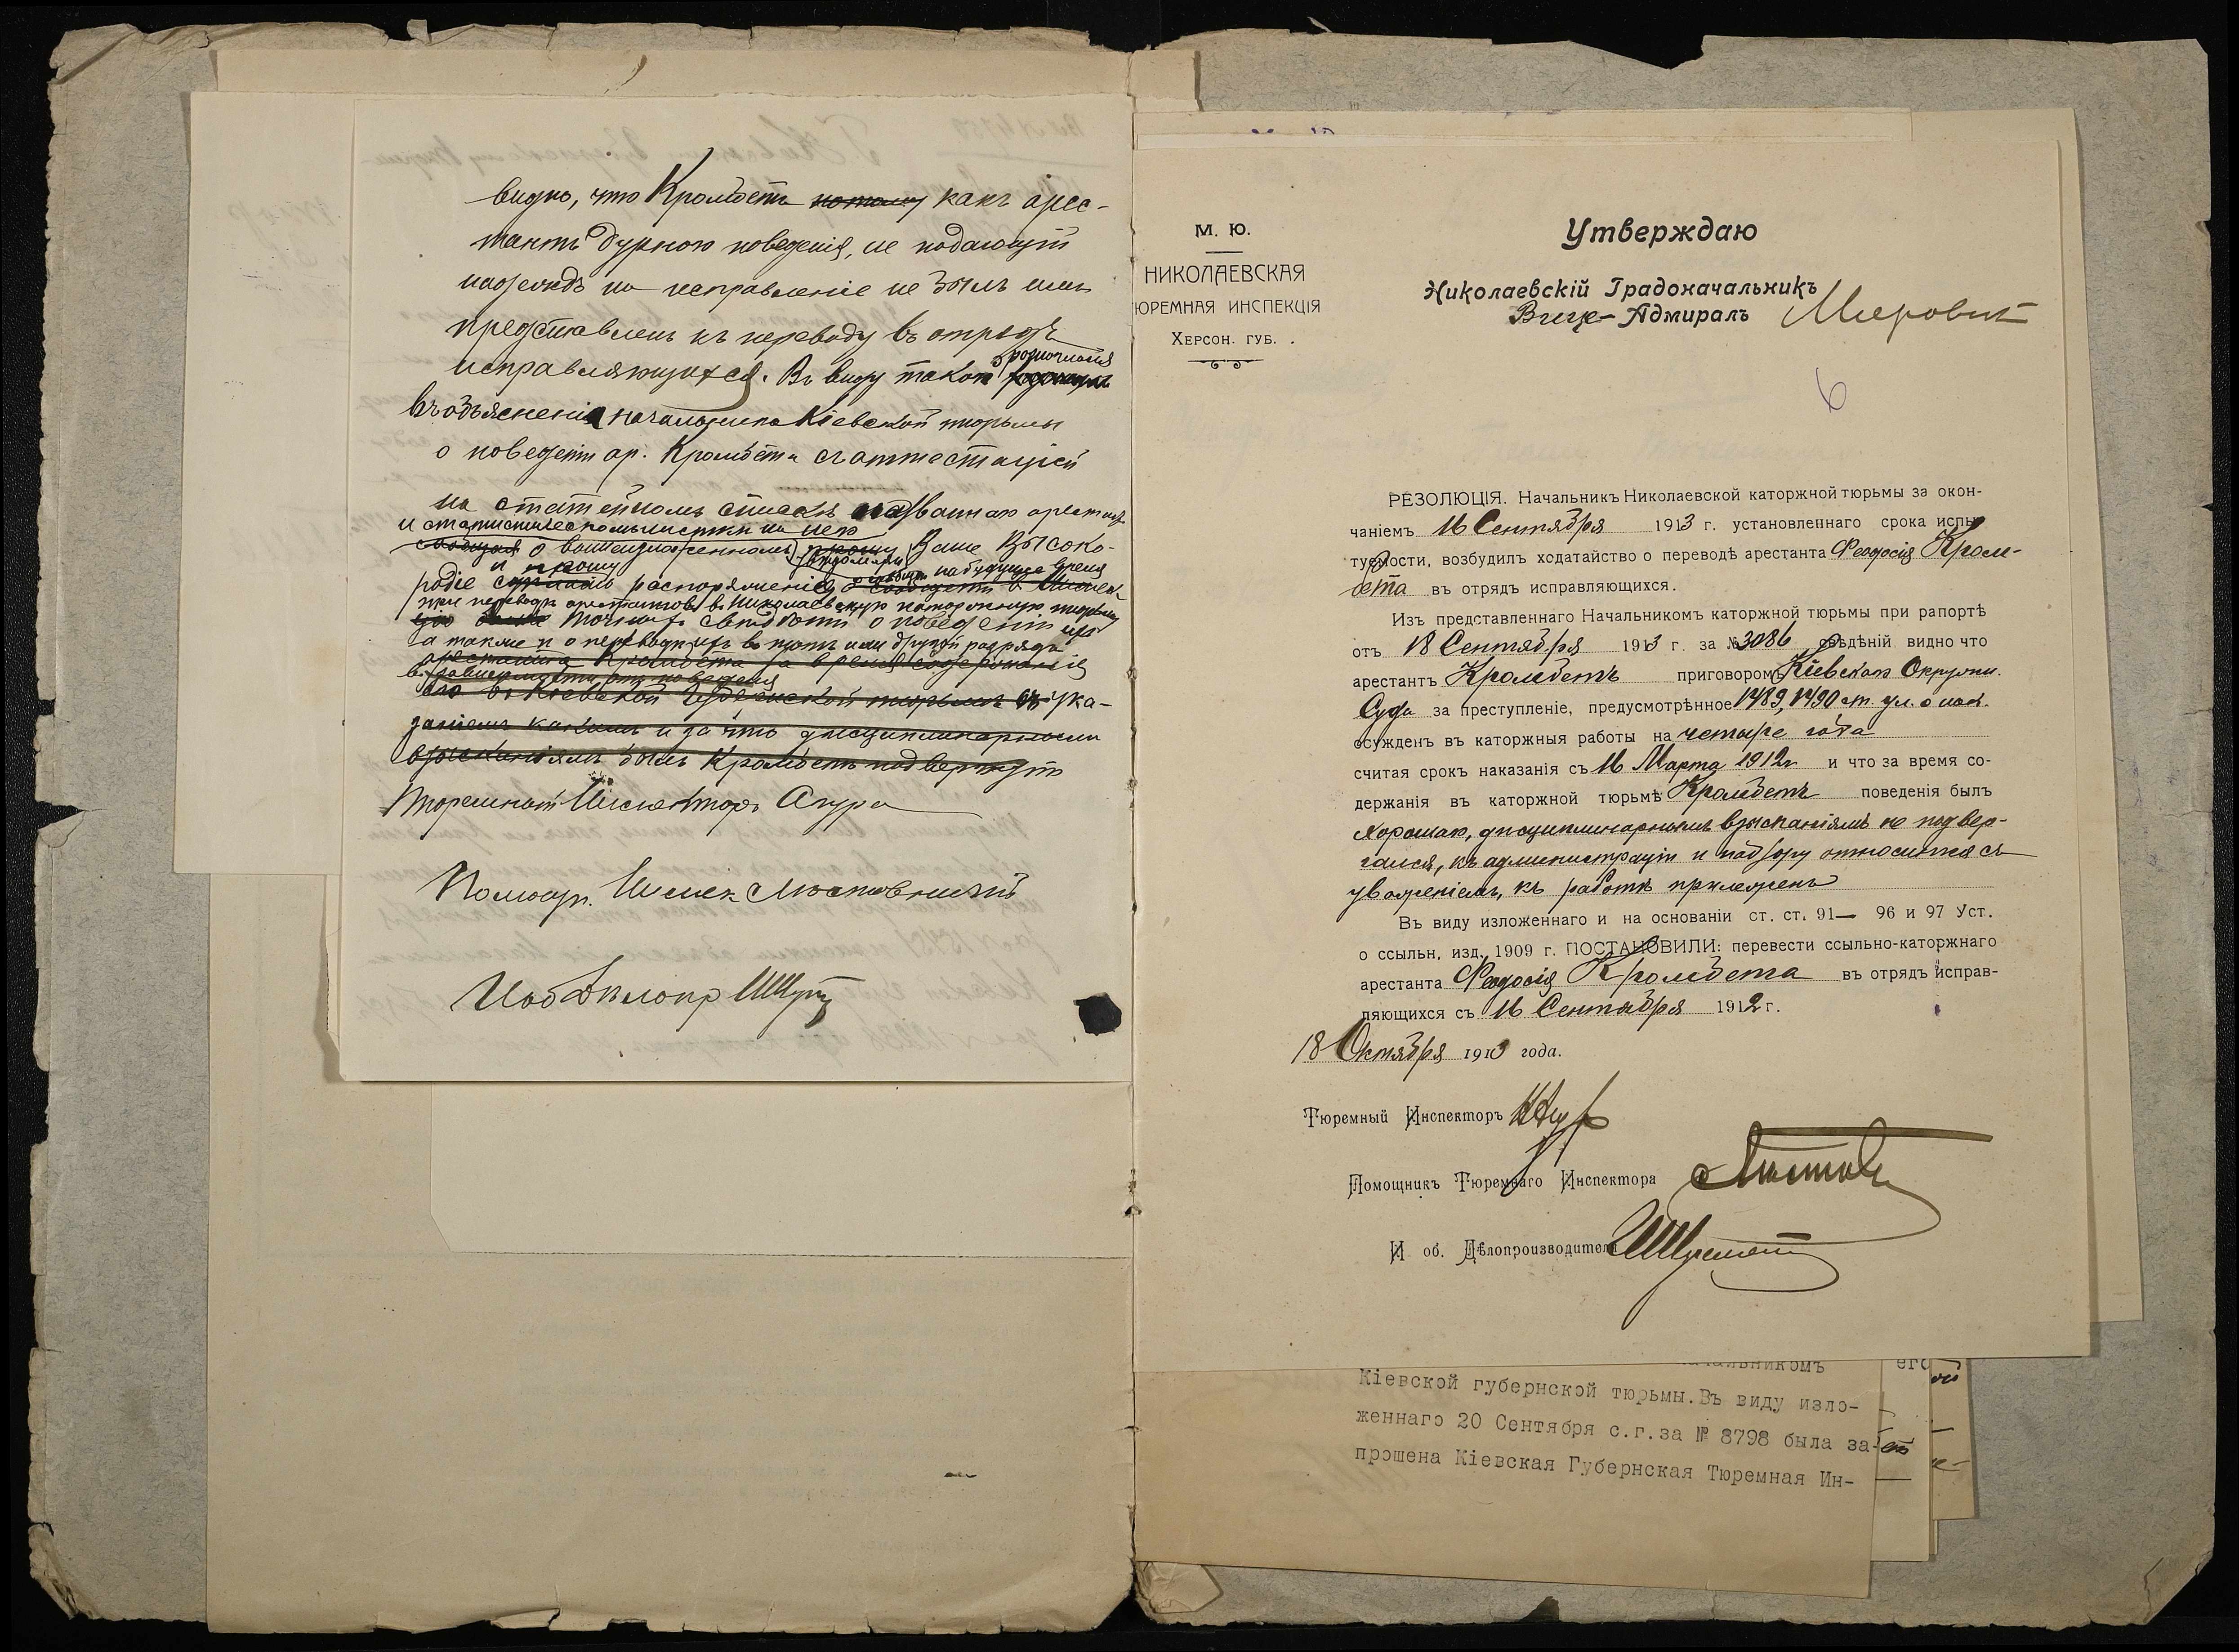 видно, что Кромбетъ потому какъ арес-
тантъ дурного поведенія, не подающій
надежды на исправленіе не былъ имъ
представленъ къ переводу въ отрядъ
разногласія
исправляющихся. Въ виду такого
въ объясненіи начальника Кіевской тюрьмы
о поведеніи ар. Кромбета съ аттестаціей
на статейномъ спискѣ названнаго арестанта
и статистическомъ листкѣ на него
сообщая о вышеизложенномъ прошу Ваше Высоко-
и прошу
родіе распоряженія о сообщеніи на будущее время
при переводѣ арестантовъ въ Николаевскую каторжную тюрьму
точныхъ свѣдѣній о поведеніи ихъ
а также и о переводѣ ихъ въ тотъ или другой разрядъ
арестанта Кромбета за время содержанія
въ зависимости отъ поведенія
его въ Кіевской Губернской тюрьмѣ съ ука-
заніемъ какимъ и за что дисциплинарнымъ
взысканіямъ былъ Кромбетъ подвергнутъ
Тюремный Инспекторъ
Помощн. Инспек
Иоб Дѣлопр
М. Ю.
НИКОЛАЕВСКАЯ
ЮРЕМНАЯ ИНСПЕКЦІЯ
ХЕРСОН. ГУБ.
Утверждаю
Николаевскій Градоначальникъ
Вице-Адмиралъ
6
РЕЗОЛЮЦІЯ. Начальникъ Николаевской каторжной тюрьмы за окон-
чаніемъ 16 Сентября 1913 г. установленнаго срока испы-
туемости, возбудилъ ходатайство о переводѣ арестанта Феодосія Кром-
бета въ отрядъ исправляющихся.
Изъ представленнаго Начальникомъ каторжной тюрьмы при рапортѣ
отъ 18 Сентября 1913 г. за № 3086 свѣдѣній видно что
арестантъ Кромбетъ приговоромъ Кіевскаго Окружн.
Суда за преступленіе, предусмотрѣнное 1489, 1490 ст. ул. о нак.
осужденъ въ каторжныя работы на четыре года
считая срокъ наказанія съ 16 Марта 1912 г и что за время со-
держанія въ каторжной тюрьмѣ Кромбетъ поведенія былъ
хорошаго, дисциплинарнымъ взысканіямъ не подвер-
гался, къ администраціи и надзору относится съ
уваженіемъ, къ работѣ прилеженъ
Въ виду изложеннаго и на основаніи ст. ст. 91— 96 и 97 Уст.
о ссыльн, изд. 1909 г. ПОСТАНОВИЛИ: перевести ссыльно-каторжнаго
арестанта Феодосія Кромбета въ отрядъ исправ-
ляющихся съ 16 Сентября 1912 г.
18 Октября 1913 года.
Тюремный Инспекторъ
Помощникъ Тюремнаго Инспектора
И об. Дѣлопроизводителя
чальникомъ
Кіевской губернской тюрьмы.Въ виду изло-
женнаго 20 Сентября с.г.за № 8798 была за-
прошена Кіевская Губернская Тюремная Ин-
его